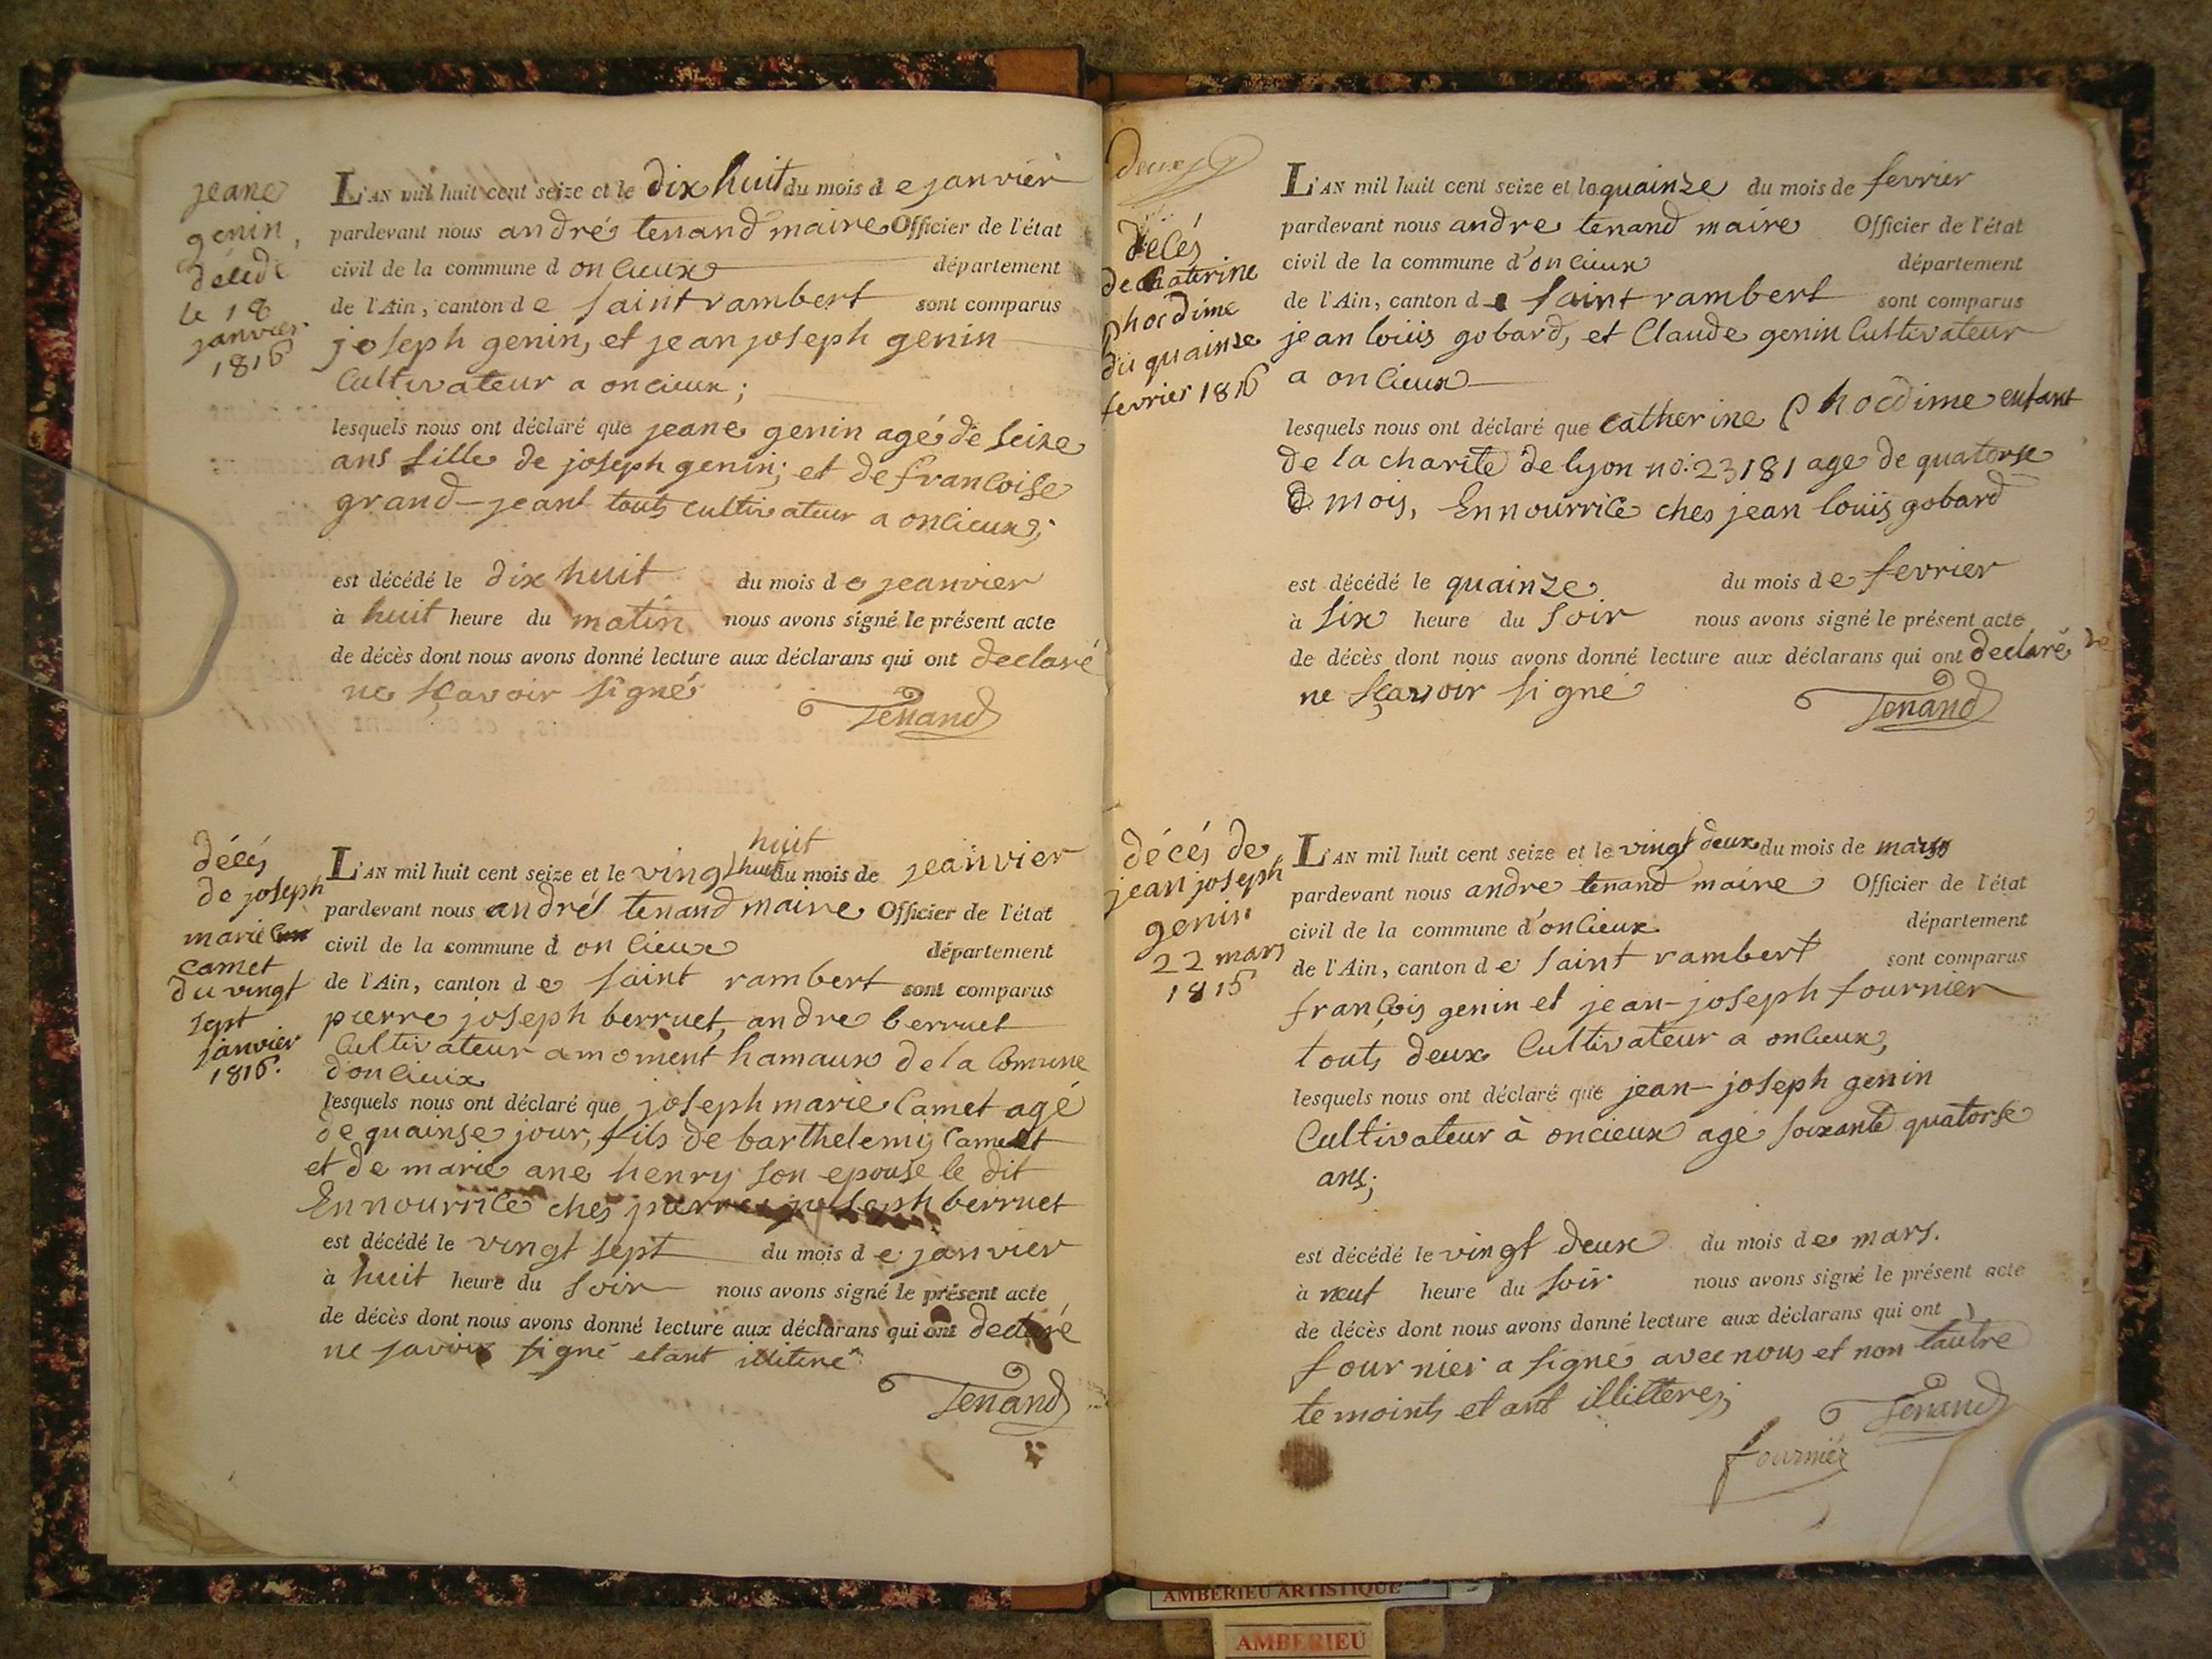 jeane
genin,
déledé
le 18
janvier
1816
L'AN mil huit cent seize et le dix huit du mois de janvier
pardevant nous andré tenand maire Officier de l'état
civil de la commune d oncieux département
de l'Ain, canton de saint rambert sont comparus
joseph genin, et jean joseph genin
Cultivateur a oncieux;
lesquels nous ont déclaré que jeane genin agé de seize
ans fille de joseph genin; et de francoise
grand-jeant touts cultivateur a oncieux;
est décédé le dix huit du mois de jeanvier
à huit heure du matin nous avons signé le présent acte
de décès dont nous avons donné lecture aux déclarans qui ont declaré
ne sçavoir signé
Tenand
décés
de joseph
marie
camet
du vingt
sept
janvier
1816.
huit
L'AN mil huit cent seize et le vingt huit du mois de jeanvier
pardevant nous andré tenand maire Officier de l'état
civil de la commune d oncieux département
de l'Ain, canton de saint rambert sont comparus
pierre joseph berruet, andre berruet
Cultivateur a moment hamaux de la Comune
d'oncieux
lesquels nous ont déclaré que joseph marie Camet agé
de quainse jour, fils de barthelemij Camet
et de marie ane henry son epouse le dit
En nourrice ches pierre joseph berruet
est décédé le vingt sept du mois de janvier
à huit heure du soir nous avons signé le présent acte
de décès dont nous avons donné lecture aux déclarans qui ont declaré
ne savoir signé etant illiteré
Tenand
deux
décés
de catirine
Phocdime
du quainze
fevrier 1816
L'AN mil huit cent seize et le quainze du mois de fevrier
pardevant nous andre tenand maire Officier de l'état
civil de la commune d'oncieux département
de l'Ain, canton de saint rambert sont comparus
jean louis gobard, et Claude genin Cultivateur
a oncieux
lesquels nous ont déclaré que catherine Phocdime enfant
de la charite de lyon no: 23181 age de quatorse
mois, En nourrice ches jean louis gobard
est décédé le quainze du mois de fevrier
à six heure du soir nous avons signé le présent acte
de décès dont nous avons donné lecture aux déclarans qui ont declaré ne
ne sçavoir signé
Tenand
décés de
jean joseph
genin
22 mars
1816
L'AN mil huit cent seize et le vingt deux du mois de mars
pardevant nous andre tenand maire Officier de l'état
civil de la commune d'oncieux département
de l'Ain, canton de saint rambert sont comparus
françois genin et jean-joseph fournier
touts deux Cultivateur a oncieux,
lesquels nous ont déclaré que jean-joseph genin
Cultivateur à oncieux age soixante quatorse
ans;
est décédé le vingt deux du mois de mars.
à neuf heure du soir nous avons signé le présent acte
de décès dont nous avons donné lecture aux déclarans qui ont
fournier a signé avec nous et non l'autre
temoints etant illitterej
Tenand
fournier
AMBERIEU ARTISTIQUE
AMBERIEU